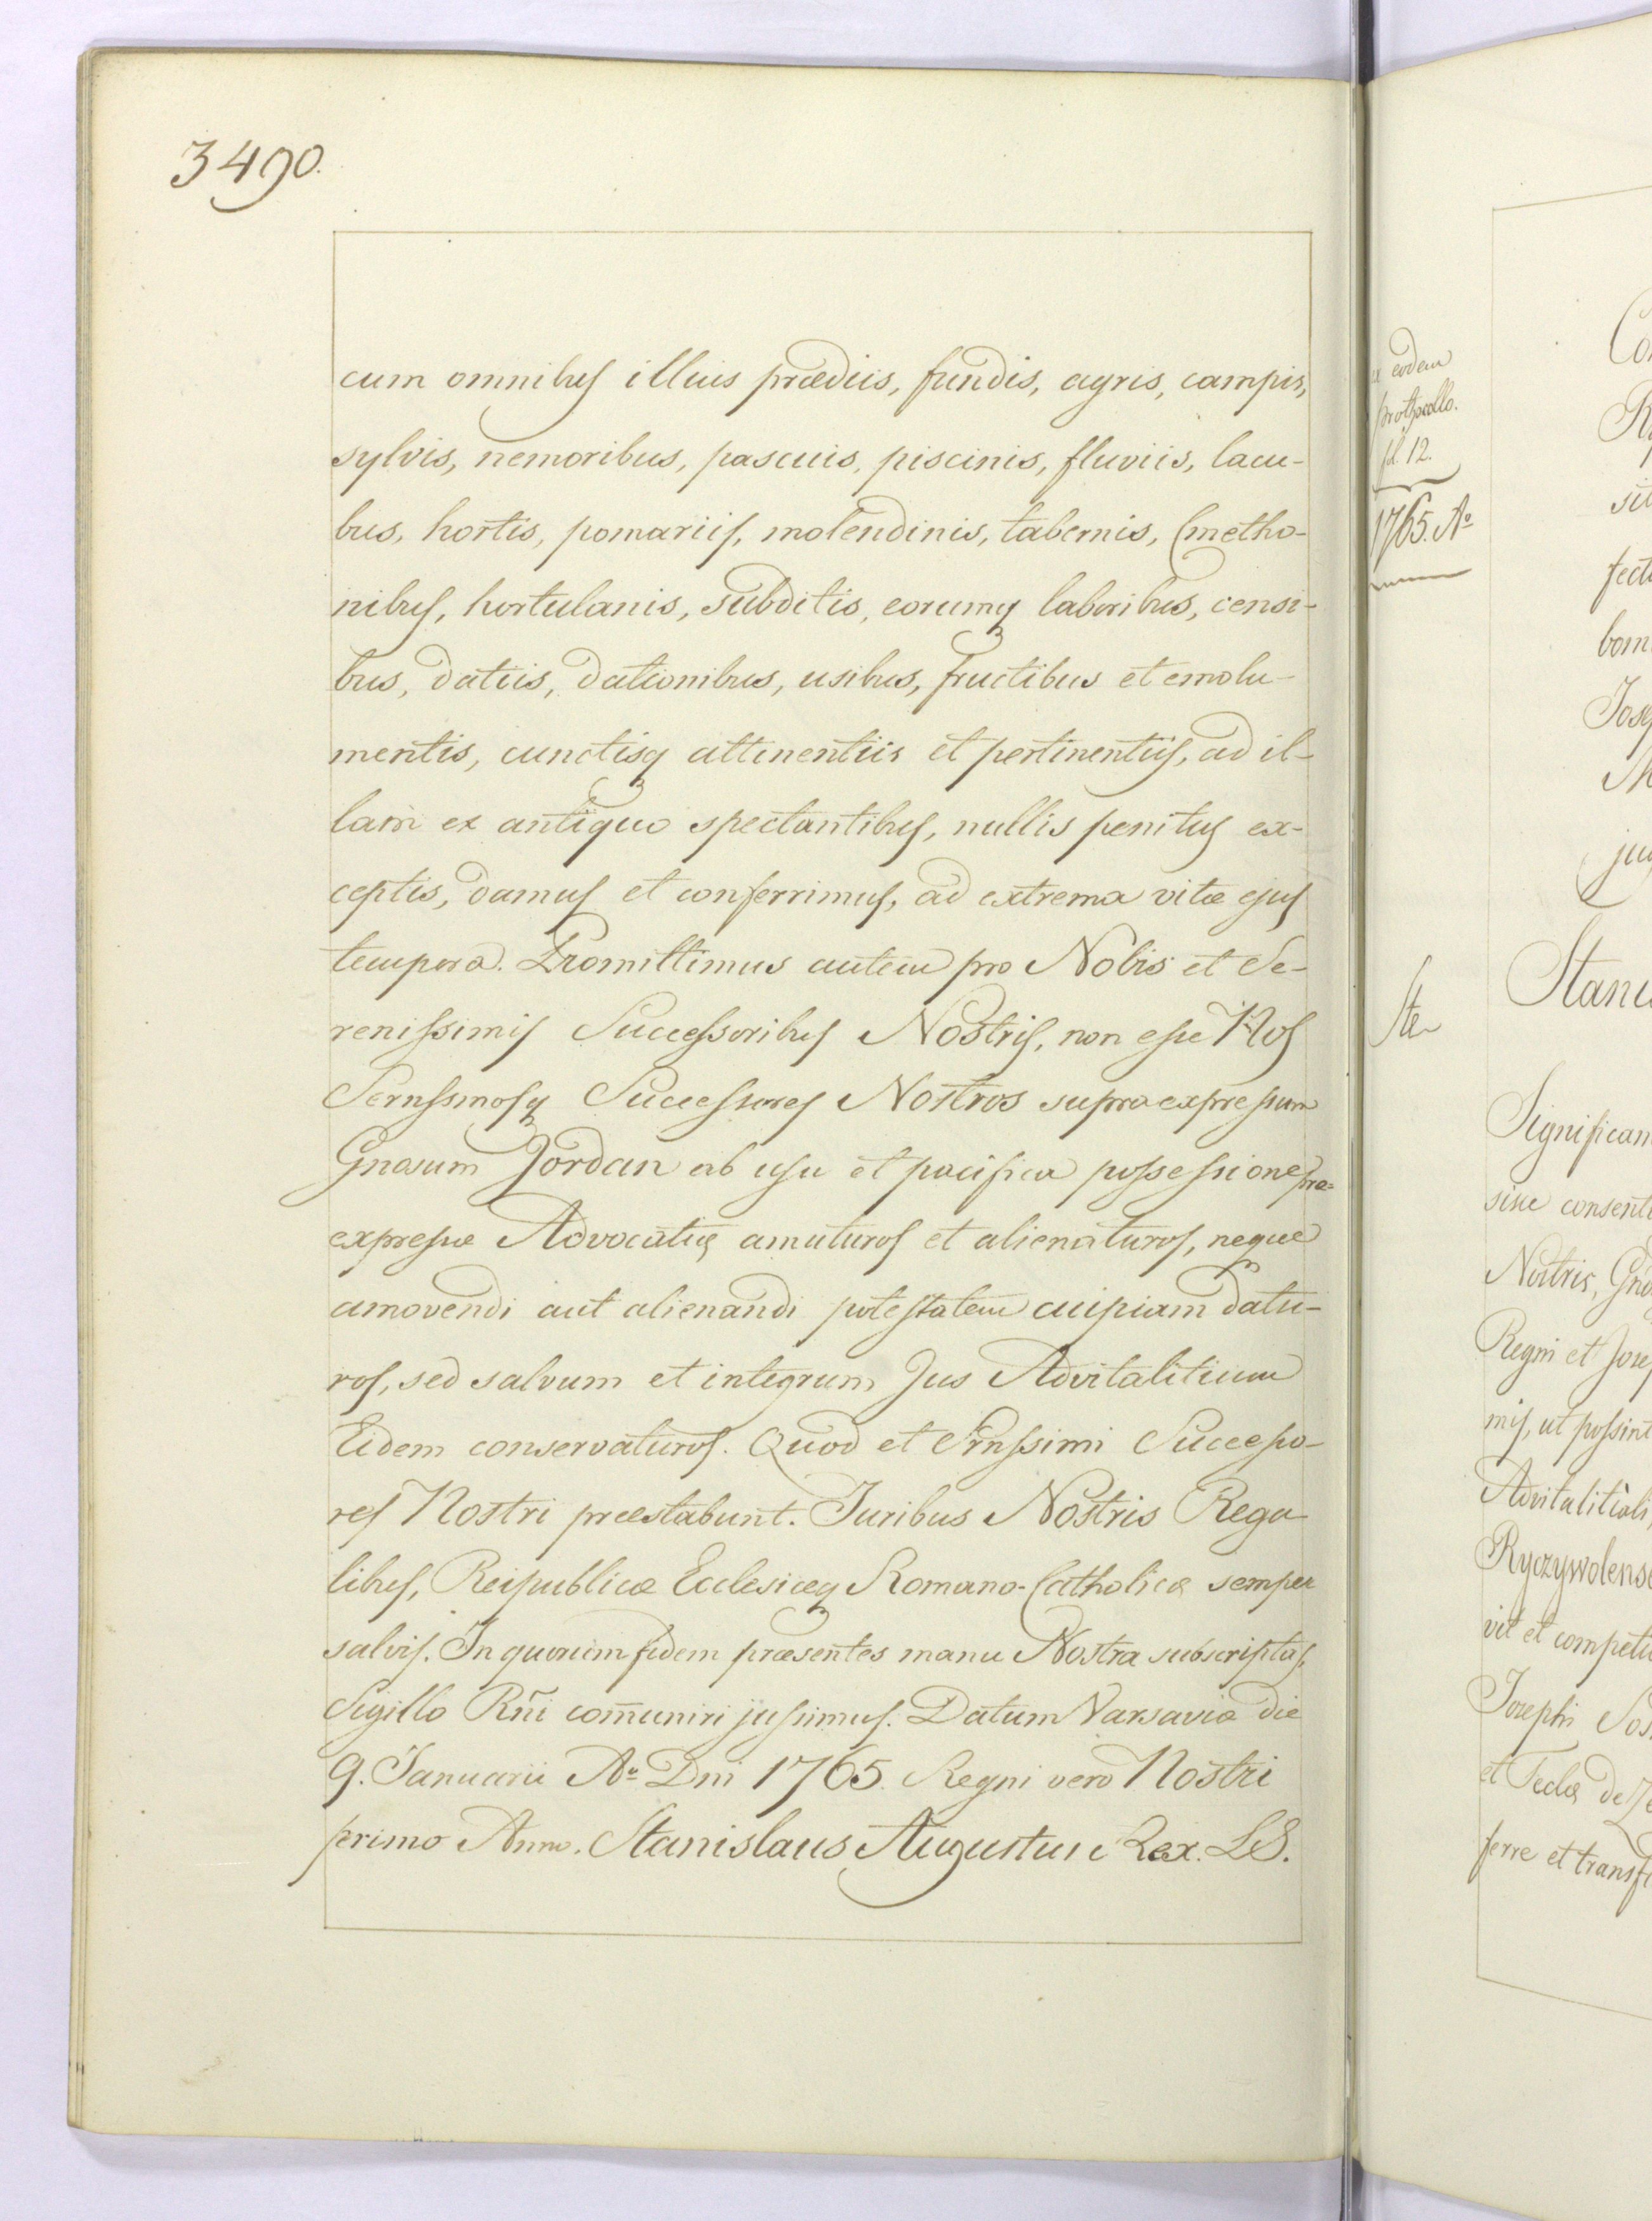 3490.
cum omnibus illius prædiis, fundis, agris, campis,
sylvis, nemoribus, pascuis, piscinis, fluviis, lacu-
bus, hortis, pomariis, molendinis, tabernis, Cmetho-
nibus, hortulanis, subditis, eorumq laboribus, censi-
bus, datiis, dationibus, usibus, fructibus et emolu-
mentis, cunctisq attinentiis et pertinentiis, ad il-
lam ex antiquo spectantibus, nullis penitus ex-
ceptis, damus et conferrimus, ad extrema vitæ ejus
tempora. Promittimus autem pro Nobis et Se-
renissimis Successoribus Nostris, non esse Nos
Sernssmosq Successores Nostros supraexpressum
Gnosum Jordan ab usu et pacifica possessione præ=
expressæ Advocatiæ amuturos et alienaturos, neque
amovendi aut alienandi potestatem cuipiam datu-
ros, sed salvum et integrum Jus Advitalitium
Eidem conservaturos. Quod et Srnssimi Successo-
res Nostri præstabunt. Juribus Nostris Rega-
libus, Reipublicæ Ecclesiæq Romano-Catholicæ semper
salvis. In quorum fidem præsentes manu Nostra subscriptas,
Sigillo Rñi com̃uniri jussimus. Datum Varsaviæ die
9. Januarii Aº Dni 1765. Regni vero Nostri
primo Anno. Stanislaus Augustus Rex. LS.
eodem
prothocollo.
fl. 12.
1765. Aº
Significam
sive consent
Nostris, Gno
Regni et Jose
mis, ut possint
Advitalitiali,
Ryczywolens
vit et competi
Josephi Sos
et Teclæ de Ze
ferre et transf